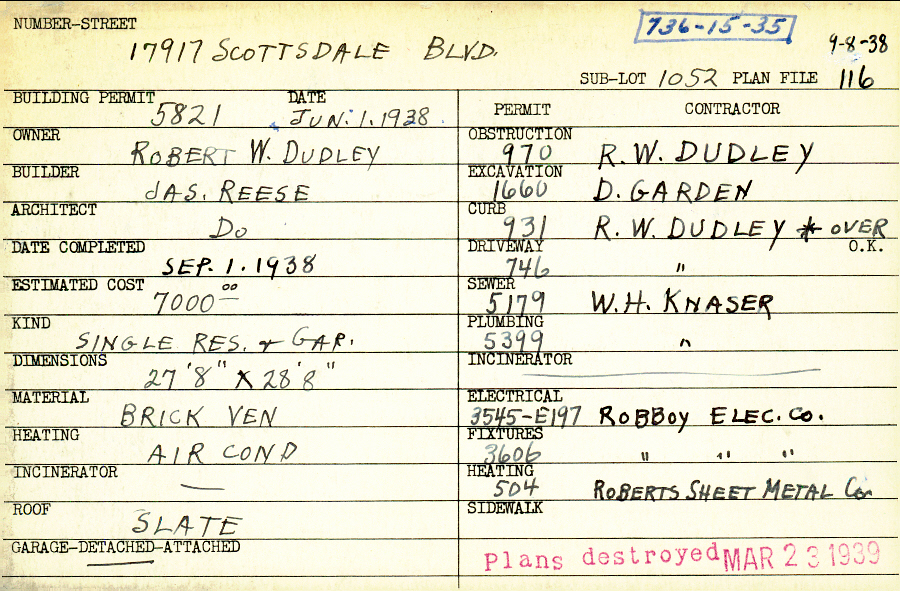 NUMBER-STREET
736-15-35
17917 SCOTTSDALE BLVD.
9-8-38
SUB-LOT 1052 PLAN FILE 116
BUILDING PERMIT 5821 DATE JUN. 1. 1938
OWNER ROBERT W. DUDLEY
BUILDER JAS. REESE
ARCHITECT Do
DATE COMPLETED SEP. 1. 1938
ESTIMATED COST 7000 00
KIND SINGLE RES. & GAR.
DIMENSIONS 27'8" X 28'8"
MATERIAL BRICK VEN
HEATING AIR COND
INCINERATOR —
ROOF SLATE
GARAGE-DETACHED-ATTACHED
PERMIT CONTRACTOR
OBSTRUCTION 970 R. W. DUDLEY
EXCAVATION 1660 D. GARDEN
CURB 931 R. W. DUDLEY * OVER
O.K.
DRIVEWAY 746 "
SEWER 5179 W. H. KNASER
PLUMBING 5399 "
INCINERATOR
ELECTRICAL 3545-E197 ROBBOY ELEC. CO.
FIXTURES 3606 " " "
HEATING 504 ROBERTS SHEET METAL Co.
SIDEWALK
Plans destroyed MAR 23 1939